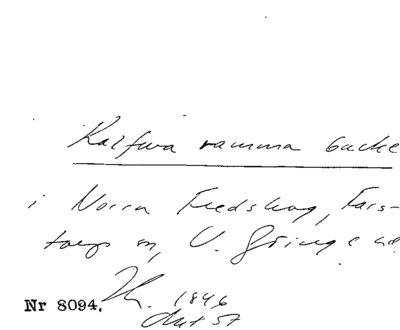 Kalfwa ramma backe
i Norra Fredskog, Fars-
torps sn, V. Göinge hd.
1846
Akt 57
Nr 8094.